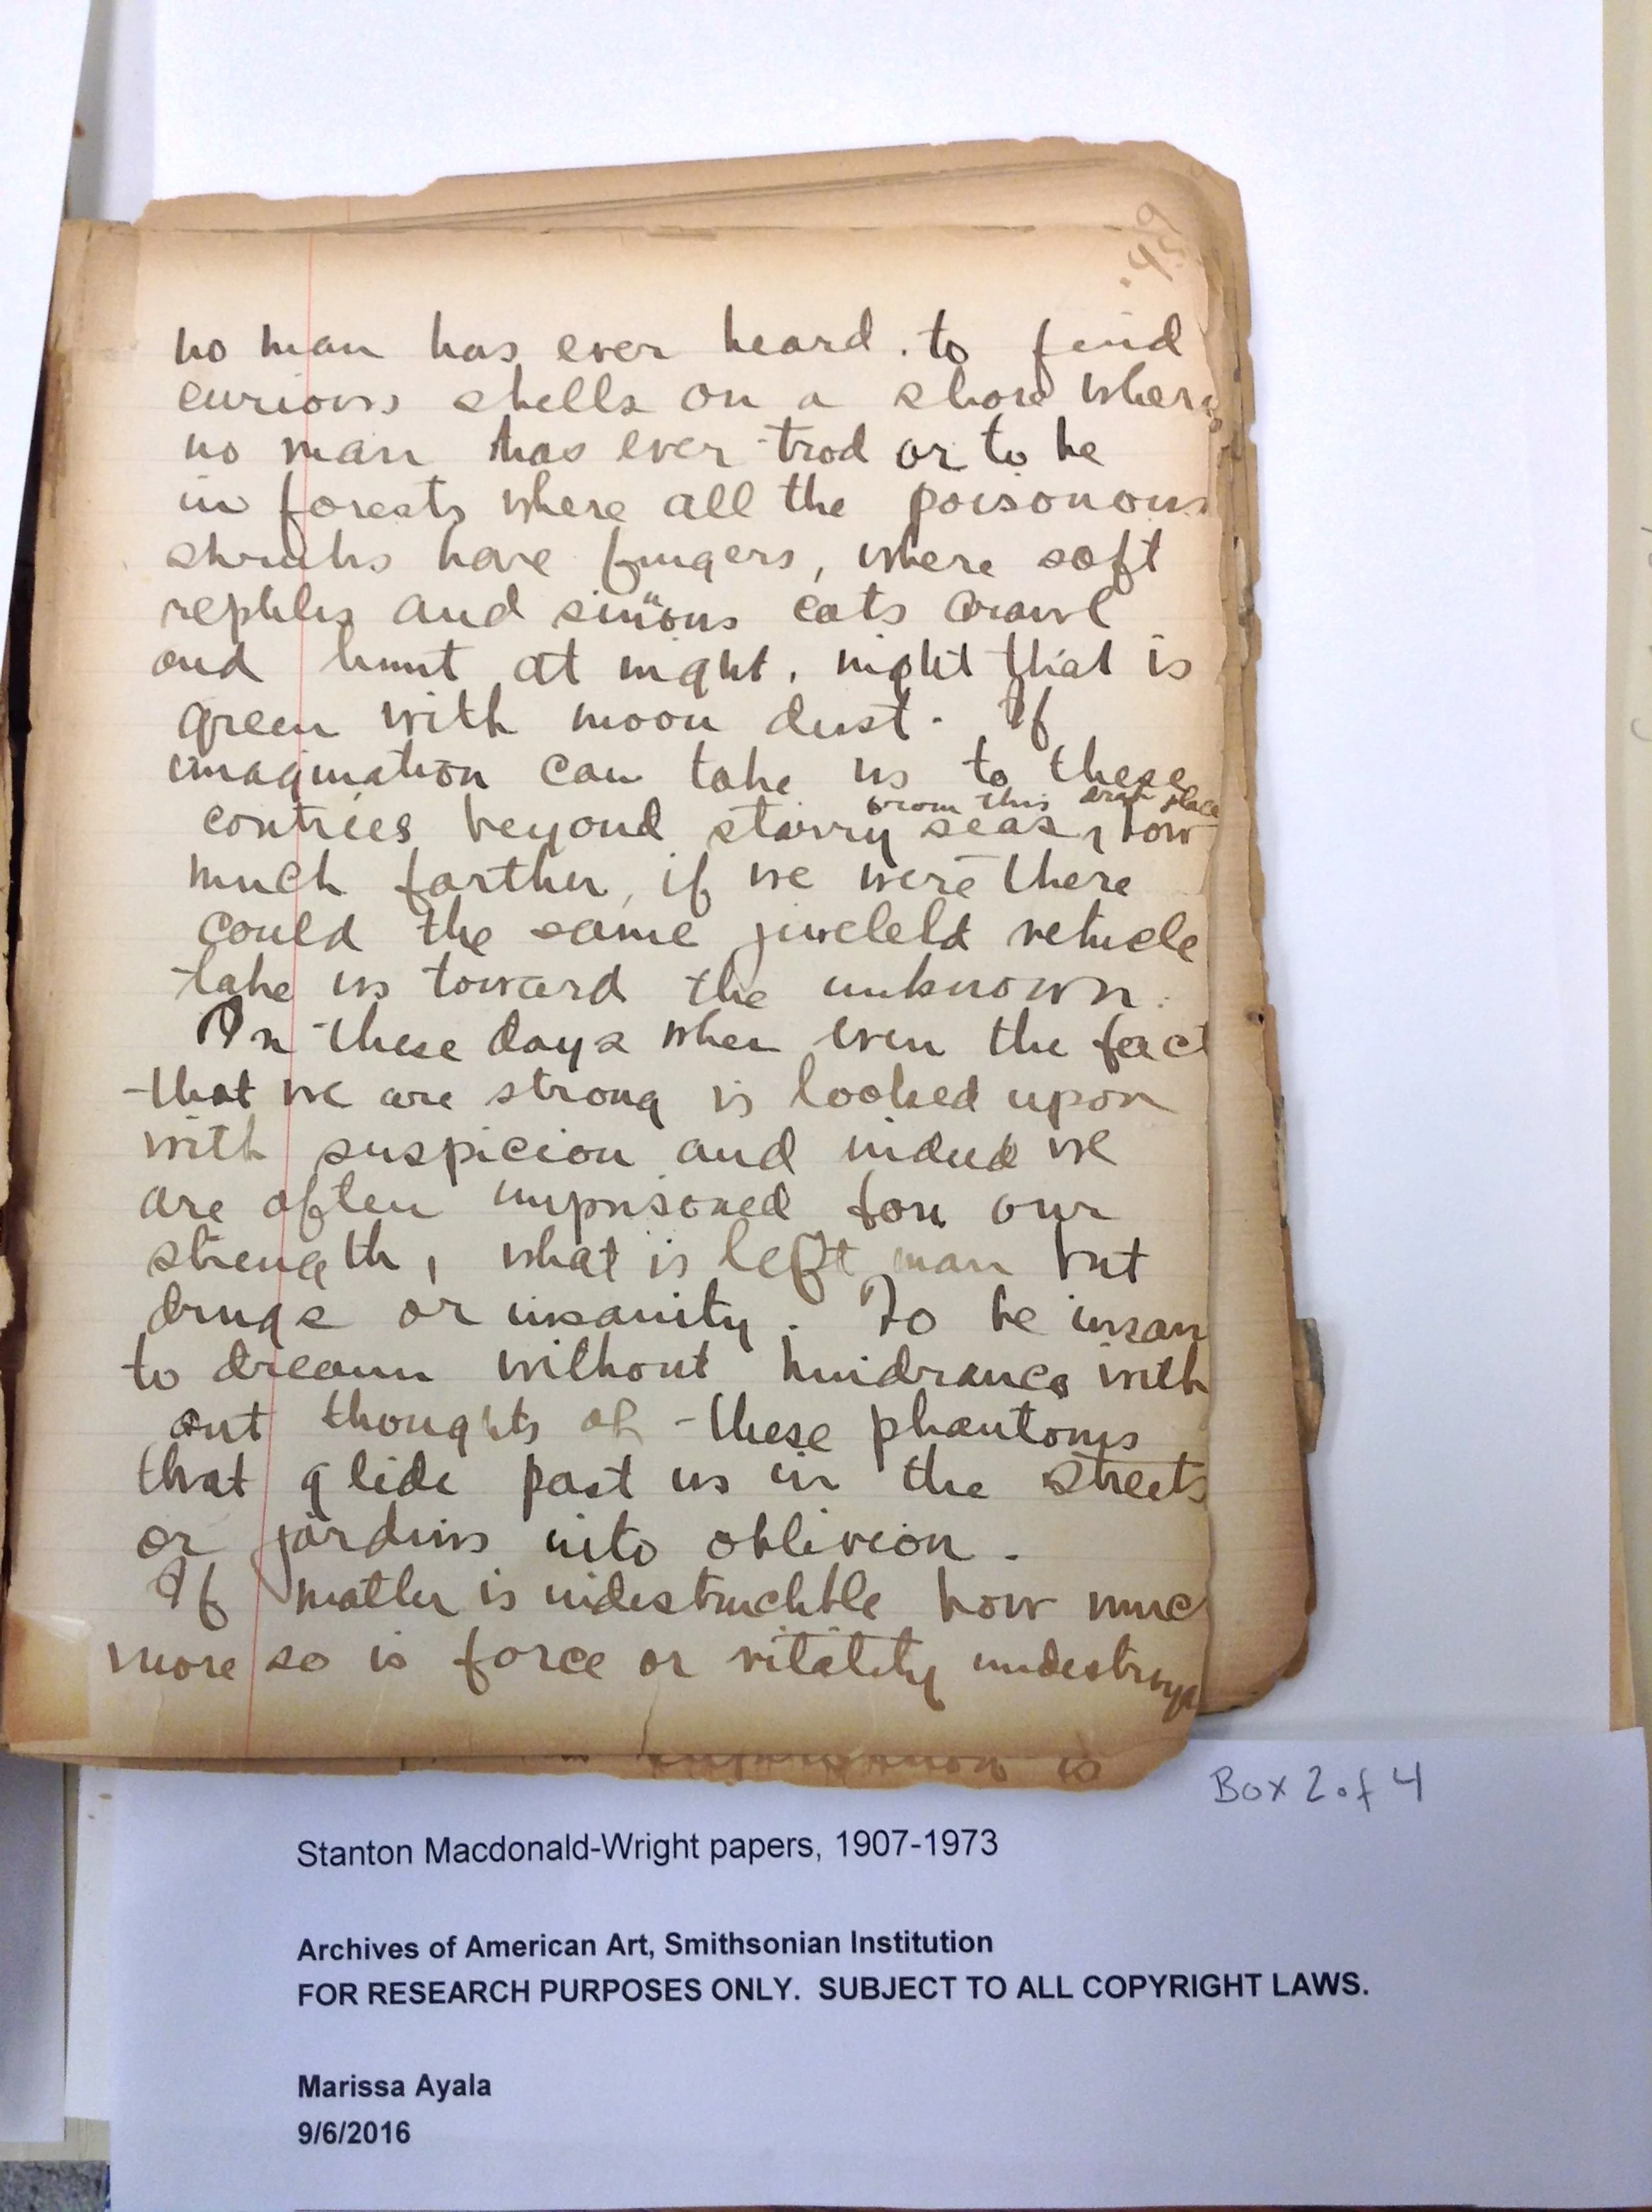 459
no man has ever heard. to find
curious shells on a shore where
no man has ever trod or to be
in forests where all the poisonous
shrubs have fingers, where soft
reptiles and sinüous cats crawl
and hunt at night, night that is
green with moon dust. If
imagination can take us to these
from this drab place
contries beyond starry seas, how
much farther, if we were there
could the same jeweleld vehicle
take us toward the unknown.
In these days when even the fact
that we are strong is looked upon
with suspicion and indeed we
are often imprisoned for our
strength, what is left man but
drugs or insanity. To be insan
to dream without hindrance with
out thoughts of these phantoms
that glide past us in the streets
or jardins into oblivion.
If matter is indestructible how muc
more so is force or vitality undestroya
is
Box 2 of 4
Stanton Macdonald-Wright papers, 1907-1973
Archives of American Art, Smithsonian Institution
FOR RESEARCH PURPOSES ONLY. SUBJECT TO ALL COPYRIGHT LAWS.
Marissa Ayala
9/6/2016